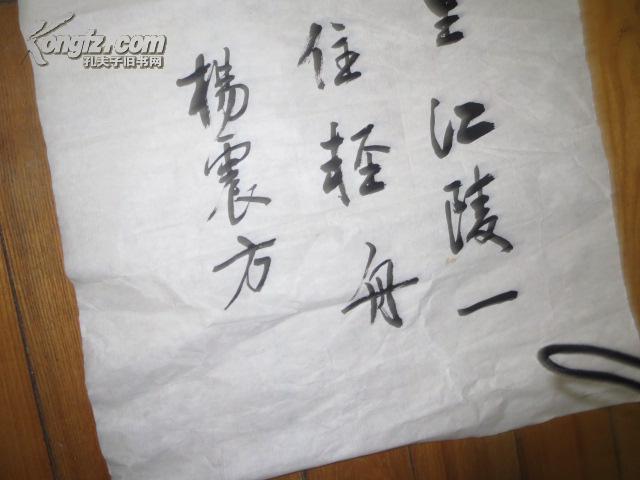 里江陵一
住轻舟
楊震方
Kongfz.com
孔夫子旧书网